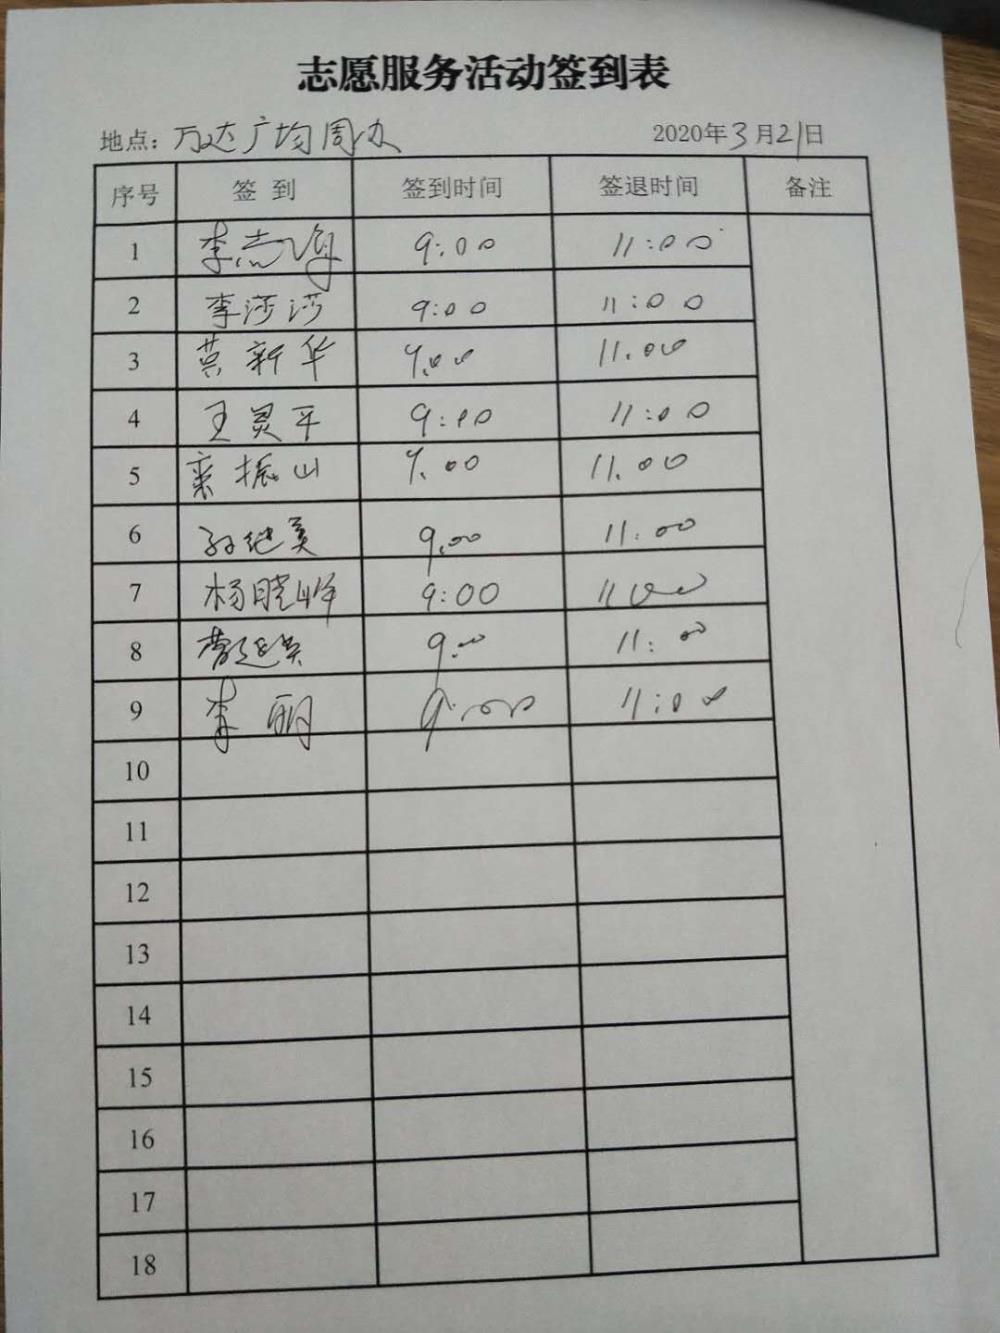 志愿服务活动签到表
地点：万达广均周边 2020年3月21日
序号 签到 签到时间 签退时间 备注
1 李志海 9:00 11:00
2 李莎莎 9:00 11:00
3 黄新华 9.00 11.00
4 王灵平 9:00 11:00
5 栾振山 9.00 11.00
6 孙继美 9.00 11:00
7 杨晓峰 9:00 11:00
8 曹延美 9:00 11:00
9 李丽 9:00 11:00
10
11
12
13
14
15
16
17
18